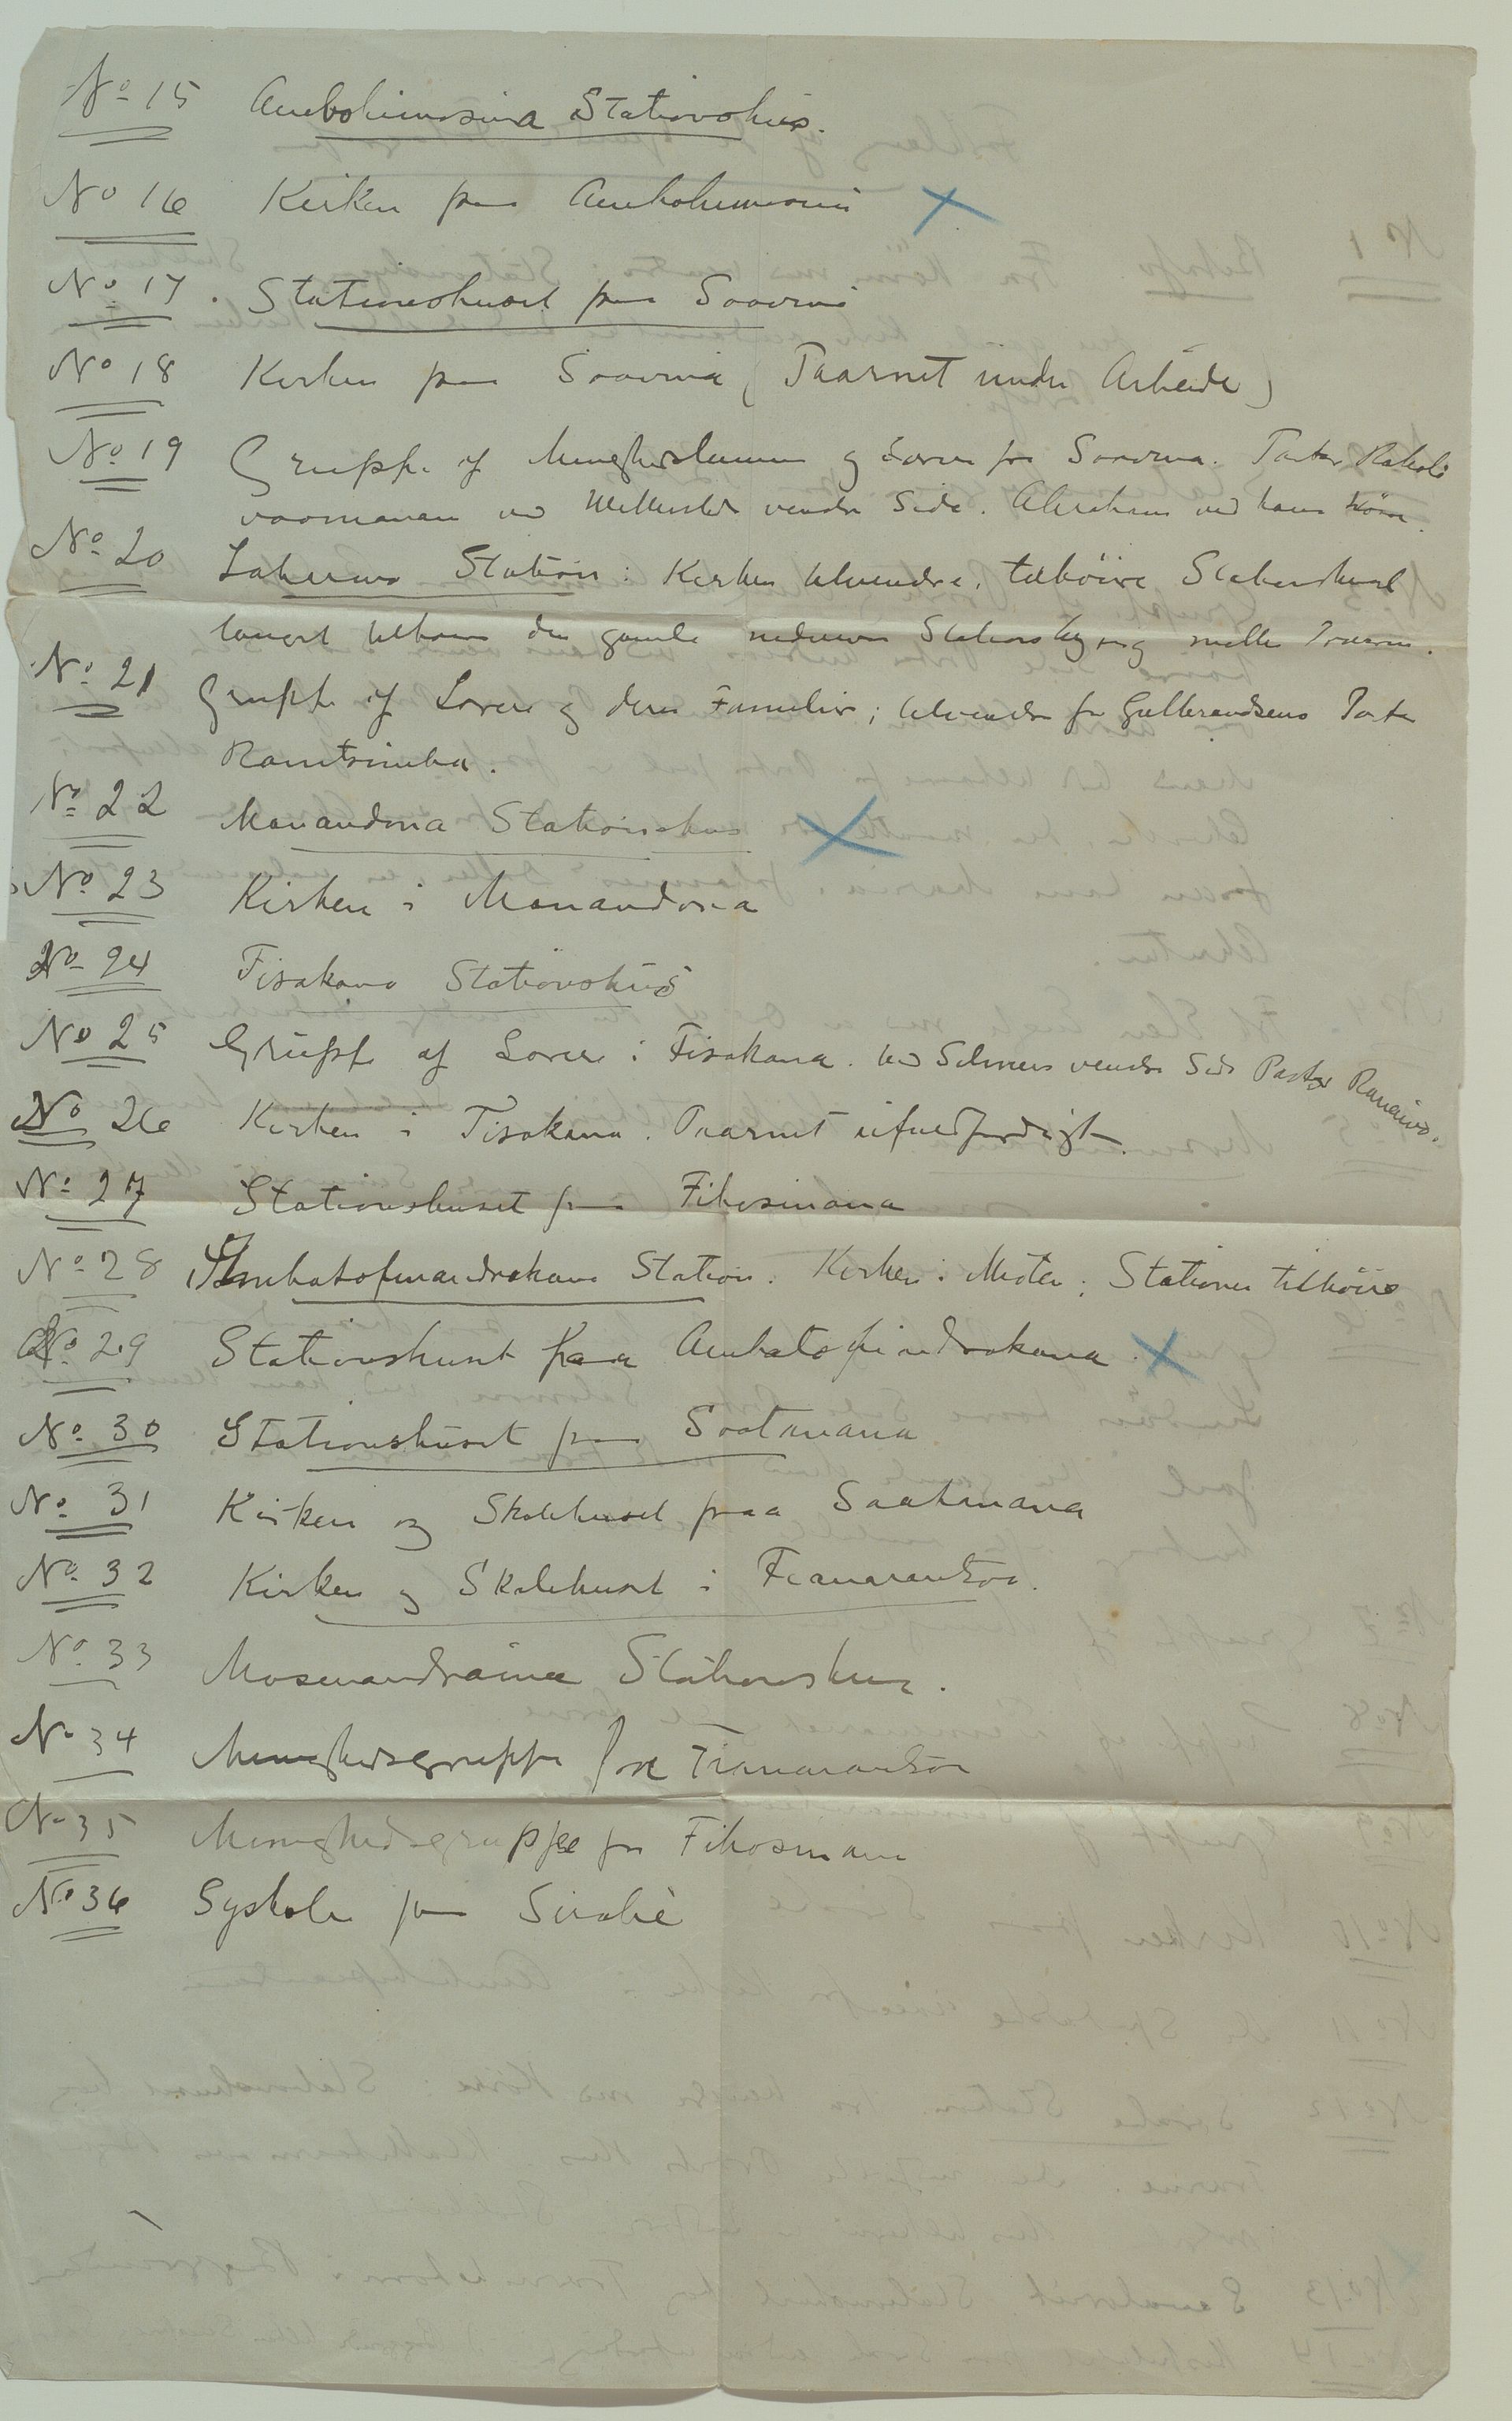 No 15 Ambohimasina Stationshus.
No 16 Kirken paa Ambohimasina
No 17. Stationshuset paa Soavina
No 18 Kirken paa Soavina (Taarnet under Arbeide)
No 19 Gruppe af Menighedslemmer og Lærere fra Soavina. Pastor Rakoto
vaomanan ved venstre Side. Abraham ved hans höire.
No 20 Loharano Station: Kirken tilvenstre, tilhöire Stationshuset
længst tilhöire den gamle nedrevne Stationsbygning mellem Træerne.
No 21 Gruppe af Lærere og deres Familier; tilvenstre for Gulbrandsens Pastor
Ramtsimba.
No 22 Manandona Stationshus
No 23 Kirken i Manandona
No 24 Fisakana Stationshus
No 25 Gruppe af Lærere i Fisakana. ved venstre Side Pastor Ranaivo.
No 26 Kirken i Fisakana. Taarnet ufuldfærdigt.
No 27 Stationshuset paa Fihasinana
No 28 Ambatofinandrahana Station. Kirken i Midten; Stationen tilhöire
No 29 Stationshuset paa Ambatofinandrahana
No 30 Stationshuset paa Soatanana
No 31 Kirken og Skolehuset paa Soatanana
No 32 Kirken og Skolehuset i Fianarantsoa.
No 33 Masinandraina Stationshus.
No 34 Menighedsgruppe fra Fianarantsoa
No 35 Menighedsgruppe fra Fihasinana
No 36 Syskolen paa Sirabé